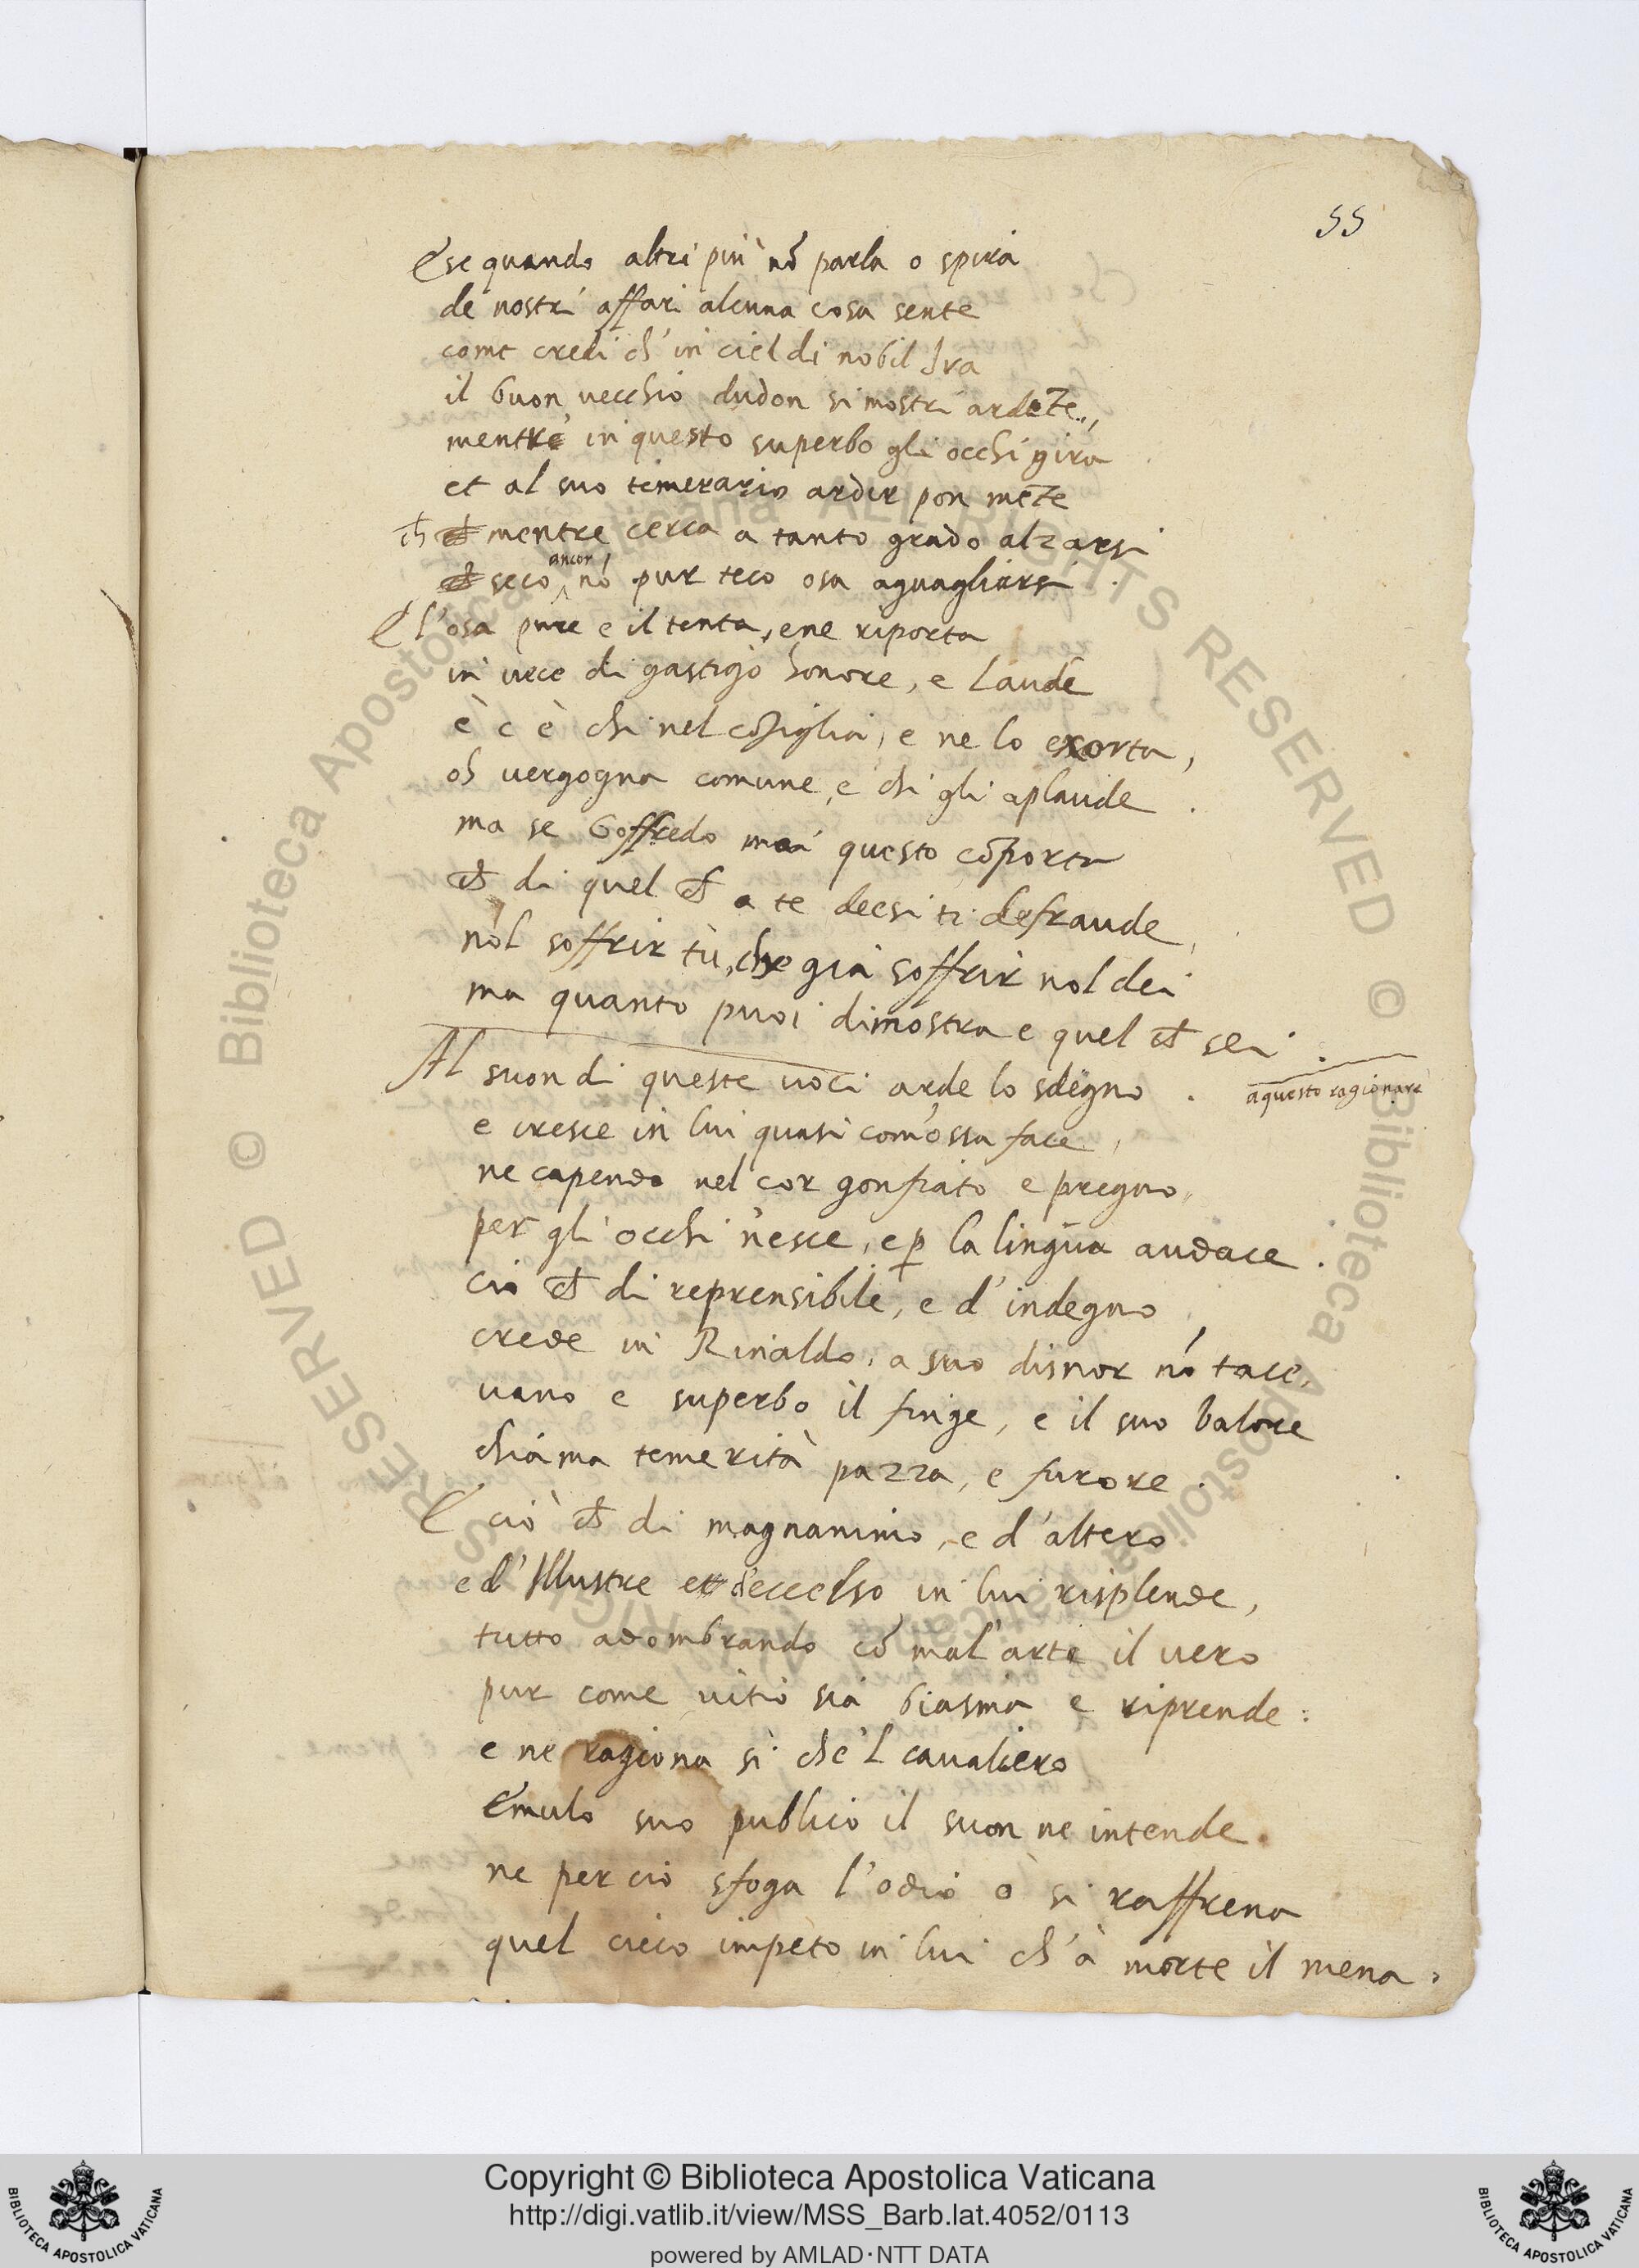 55
E se quando altri più nõ parla o spira
de nostri affari alcuna cosa sente
come credi ch' in ciel di nobil Ira
il buon vecchio dudon si mostri ardēte,
mentre in questo superbo gli occhi gira
et al suo temerario ardir pon mēte
ch mentre cerca a tanto grado alzarsi
seco ancor, nõ pur teco osa aguagliarsi.
E l'osa pure e il tenta, e ne riporta
in vece di gastigo honore, e laude
e c è chi nel cõsiglia, e ne lo exorta,
oh vergogna comune, e chi gli aplaude.
ma se Goffredo mai questo cõporta
ch̃ di quel ch̃ a te deesi ti defraude,
nol soffrir tù, che già soffrir nol dei
ma quanto puoi dimostra e quel ch̃ sei.
Al suon di queste voci arde lo sdegno.
a questo ragionare
e cresce in lui quasi com'ossa face,
ne capendo nel cor gonfiato e pregno,
per gli occhi n'esce, e p̱ la lingua audace.
ciò ch̃ di reprensibile, e d'indegno
crede in Rinaldo, a suo disnor nõ tace,
vano e superbo il finge, e il suo valore
chiama temerità pazza, e furore.
E ciò ch̃ di magnanimo, e d'altero
e d'Illustre et d'eccelso in lui risplende,
tutto adombrando cõ mal'arte il vero
pur come vitio sia biasma e riprende:
e ne ragiona sì che'l cavaliero
Emulo suo publico il suon ne intende.
ne perciò sfoga l'odio ò si raffrena
quel cieco impeto in lui ch'à morte il mena.
© Biblioteca Apostolica Vaticana ALL RIGHTS RESERVED
© Biblioteca Apostolica Vaticana ALL RIGHTS RESERVED
BIBLIOTECA APOSTOLICA VATICANA
Copyright © Biblioteca Apostolica Vaticana
http://digi.vatlib.it/view/MSS_Barb.lat.4052/0113
powered by AMLAD·NTT DATA
BIBLIOTECA APOSTOLICA VATICANA